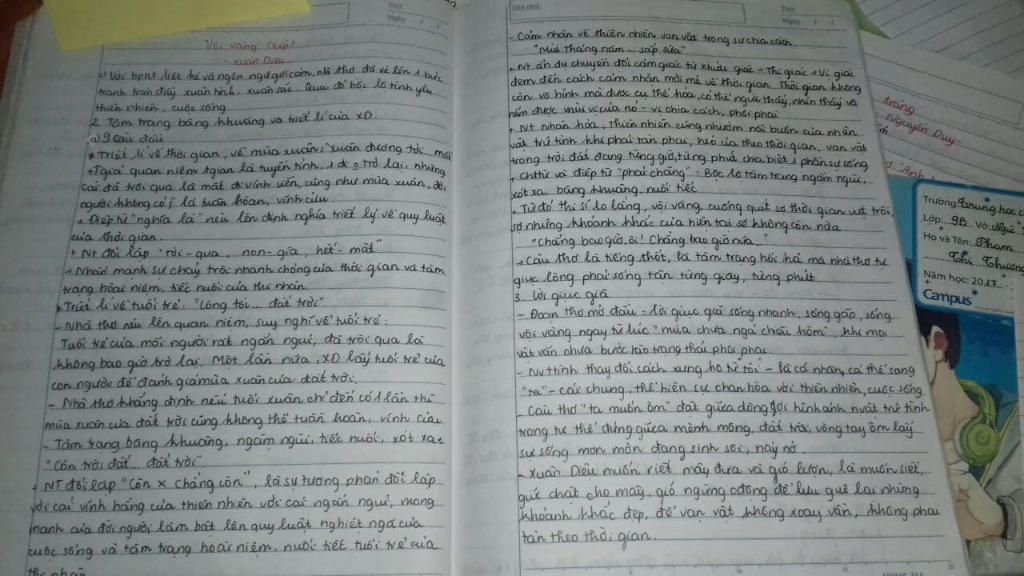 Vội vàng (tiếp)
- Xuân Diệu
=> Với bpnt liệt kê và ngôn ngữ gợi cảm, nhà thơ đã vẽ lên 1 bức
tranh tràn đầy xuân tình, xuân sắc. Qua đó bộc lộ tình yêu
thiên nhiên, cuộc sống.
2. Tâm trạng băng khuâng và triết lí của XD.
a) 9 câu đầu
* Triết lí về thời gian, về mùa xuân: "xuân đương tới... mất
+ Tgiả quan niệm tgian là tuyến tính, 1 đi ko trở lại, những
cái đã trôi qua là mất đi vĩnh viễn, cũng như mùa xuân, đời
người không có là tuần hoàn, vĩnh cửu.
+ Điệp từ "nghĩa là" nêu lên định nghĩa triết lý về quy luật
của thời gian.
+ NT đối lập "tới - qua, non - già, hết - mất"
-> Nhấn mạnh sự chảy trôi nhanh chóng của thời gian và tâm
trạng hoài niệm, tiếc nuối của thi nhân
* Triết lí về tuổi trẻ: "Lòng tôi ... đất trời"
- Nhà thơ nêu lên quan niệm, suy nghĩ về tuổi trẻ:
Tuổi trẻ của mỗi người rất ngắn ngủi, đã trôi qua là
không bao giờ trở lại. Một lần nữa, XD lấy tuổi trẻ của
con người để đánh giá mùa xuân của đất trời.
- Nhà thơ khẳng định nếu tuổi xuân chỉ đến có 1 lần thì
mùa xuân của đất trời cũng không thể tuần hoàn, vĩnh cửu
- Tâm trạng băng khuâng, ngậm ngùi, tiếc nuối, xót xa
"Còn trời đất ... đất trời"
+ NT đối lập "Còn x chẳng còn", là sự tương phản đối lập
với cái vĩnh hằng của thiên nhiên với cái ngắn ngủi, mong
manh của đời người làm bật lên quy luật nghiệt ngã của
cuộc sống và tâm trạng hoài niệm, nuối tiếc tuổi trẻ của
thi nhân
Ghi chú:
Thứ:
Ngày
- Cảm nhận về thiên nhiên vạn vật trong sự chia cách.
"Mùi tháng năm ... sắp sửa"
+ NT ẩn dụ chuyển đổi cảm giác từ khứu giác -> Thị giác -> Vị giác
đem đến cách cảm nhận mới mẻ về thời gian. Thời gian không
còn vô hình mà được cụ thể hóa, có thể ngửi thấy, nhìn thấy và
nếm được mùi vị của nó - vị chia cách, phôi phai
+ NT Nhân hóa, thiên nhiên cũng nhuốm nỗi buồn của nhân
vật trữ tình khi phai tàn phai, héo úa theo thời gian, vạn vật
trong trời đất đang từng giờ, từng phút chia biệt 1 phần sự sống
+ Chi từ và điệp từ "phai chăng": Bộc lộ tâm trạng ngậm ngùi,
xót xa, băng khuâng, nuối tiếc
+ Từ đó thi sĩ lo lắng, vội vàng, cuống quýt sợ thời gian vụt trôi,
sợ những khoảnh khắc của hiện tại sẽ không còn nữa
"Chẳng bao giờ, ôi! Chẳng bao giờ nữa..."
-> Câu thơ là tiếng thốt, là tâm trạng hối hả mà nhà thơ tự
giục lòng phải sống tận từng giây, từng phút
3. Lời giục giã
- Đoạn thơ mở đầu = lời giục giã sống nhanh, sống gấp, sống
vội vàng ngay từ lúc "mùa chưa ngả chiều hôm" khi mọi
vật vẫn chưa bước vào trạng thái phôi phai
- NV tình thay đổi cách xưng hô từ tôi - là cá nhân, cá thể sang
"ta" - cái chung, thể hiện sự chan hòa với thiên nhiên, cuộc sống
- Câu thơ "ta muốn ôm" đặt giữa dòng gợi hình ảnh nvật trữ tình
trong tư thế đứng giữa mênh mông, đất trời, vòng tay ôm lấy
sự sống mơn mởn đang sinh sôi, nảy nở
- Xuân Diệu muốn riết mây đưa và gió lượn, là muốn siết,
giữ chặt cho mây, gió ngừng cđộng để lưu giữ lại những
khoảnh khắc đẹp, để vạn vật không xoay vần, không phai
tàn theo thời gian.
trăng
Nguyễn Duy
Trường: Trung học
Lớp: 9B Vở: Ngữ
Họ và Tên: Phạm
Thị Thương
Năm học: 2013
Campus